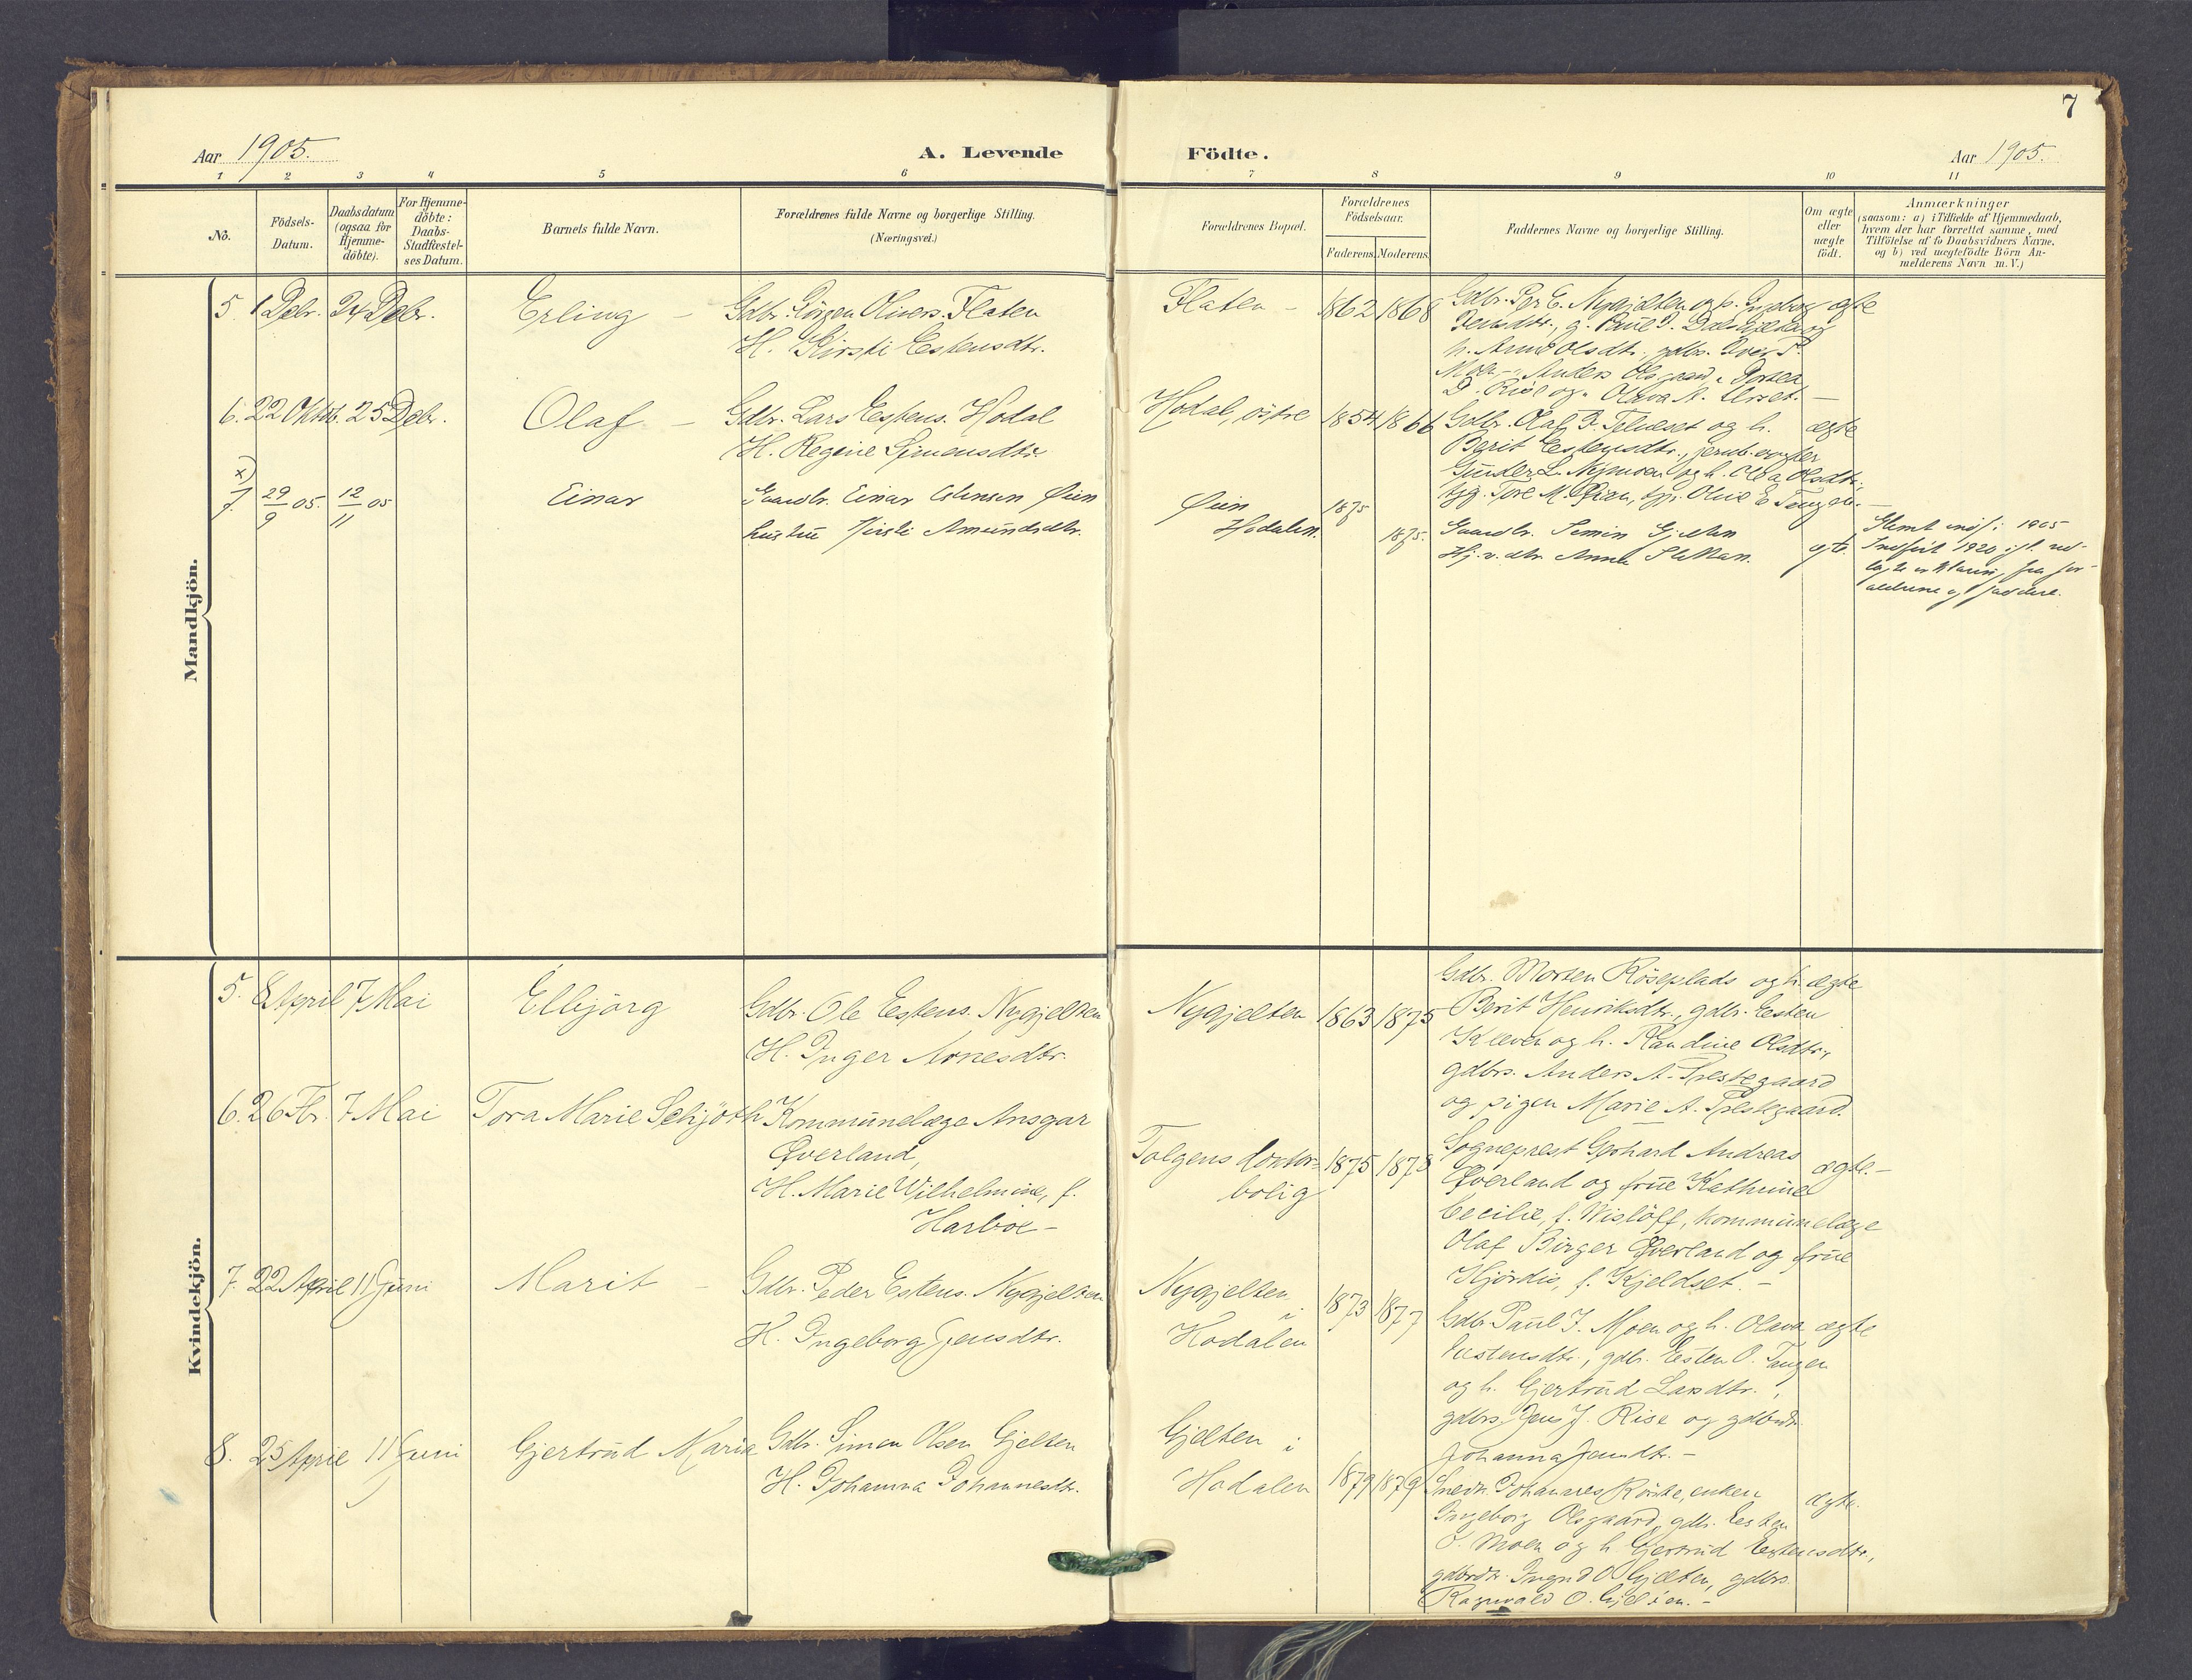 7
Aar 1905.
A. Levende Födte.
Aar 1905.
1 2 3 4 5 6 7 8 9 10 11
No.
Födsels-Datum.
Daabsdatum (ogsaa for Hjemme-döbte).
For Hjemme-döbte: Daabs-Stadfæstel-ses Datum.
Barnets fulde Navn.
Forældrenes fulde Navne og borgerlige Stilling.
(Næringsvei.)
Forældrenes Bopæl.
Forældrenes Födselsaar.
Faderens. Moderens.
Faddernes Navne og borgerlige Stilling.
Om ægte eller uægte födt.
Anmærkninger
(saasom: a) i Tilfælde af Hjemmedaab,
hvem der har forrettet samme, med
Tilföielse af to Daabsvidners Navne,
og b) ved uægtefödte Börn An-
melderens Navn m. V.)
Mandkjön.
5. 1 Debr. 24 Debr. Erling – Gdbr. Jörgen Olivers. Flaten
H. Kirsti Estensdtr.
Flaten – 1862 1868
Gdbr. Per E. Nygjelten og h. Ingeborg
Jensdtr., g. Paul J.
h. Anne Olsdtr., gdbs. Iver P.
Moen –, Anders Olsgaard,
D. Rise og Olava A.
ægte
6. 22 Oktob. 25 Debr. Olaf – Gdbr. Lars Estens. Hodal
H. Regine Simensdtr.
Hodal, östre 1854 1866
Gdbr. Olaf P. Telneset og h.
Berit Estensdtr.,
Gunder L. Nymoen og h. Olea Olsdtr.,
Tore M. Øien,
ægte
x)
7. 29/9 05. 12/11 05 Einar
Gaardbr. Einar Estensen Øien
hustru Kirsti Amundsdtr.
Øien
Hodalen. 1875 1875.
Gaardbr. Simen Gjelten
Anne
egte.
Glemt indf. i 1905
Indført 1920 ifl. ved-
lagte erklæring fra for-
ældrene og faddere.
Kvindekjön.
5. 8 April 7 Mai Elbjörg
Gdbr. Ole Estens. Nygjelten
H. Inger Arnesdtr.
Nygjelten 1863 1875
Gdbr. Morten Röseplads og h.
Berit Henriksdtr., gdbr. Esten
Kleven og h. Randine Olsdtr.,
gdbrs. Anders A. Prestegaard
og pigen Marie A. Prestegaard.
ægte
6. 26 Fbr. 7 Mai Tora Marie Schjöth
Kommunelæge Ansgar
Øverland,
H. Marie Wilhelmine, f.
Harboe –
Tolgens doktor-
bolig 1875 1878
Sogneprest Gerhard Andreas
Øverland og frue Kathrine
Cecilie, f. Wislöff, kommunelæge
Olaf Birger Øverland og frue
Hjördis, f. Kjeldset. –
ægte. –
7. 22 April 11 Juni Marit –
Gdbr. Peder Estens. Nygjelten
H. Ingeborg Jensdtr.
Nygjelten
i
Hodalen 1873 1877
Gdbr. Paul J. Moen og h. Olava
Eestensdtr., gdbr. Esten O. Tangen
og h. Gjertrud Larsdtr.,
gdbrs. Jens J. Rise og gdbrdtr.
Johanna Jensdtr. –
ægte
8. 25 April 11 Juni Gjertrud Maria
Gdbr. Simen Olsen Gjelten
H. Johanna Johannesdtr.
Gjelten i
Hodalen 1879 1879
Johannes enken
Ingeborg Olsgaard, gdbr. Esten
O. Moen og h. Gjertrud Estensdtr.,
gdbrdtr. Ingrid O. Gjelten, gdbrs.
Ragnvald O. Gjelten. –
ægte.